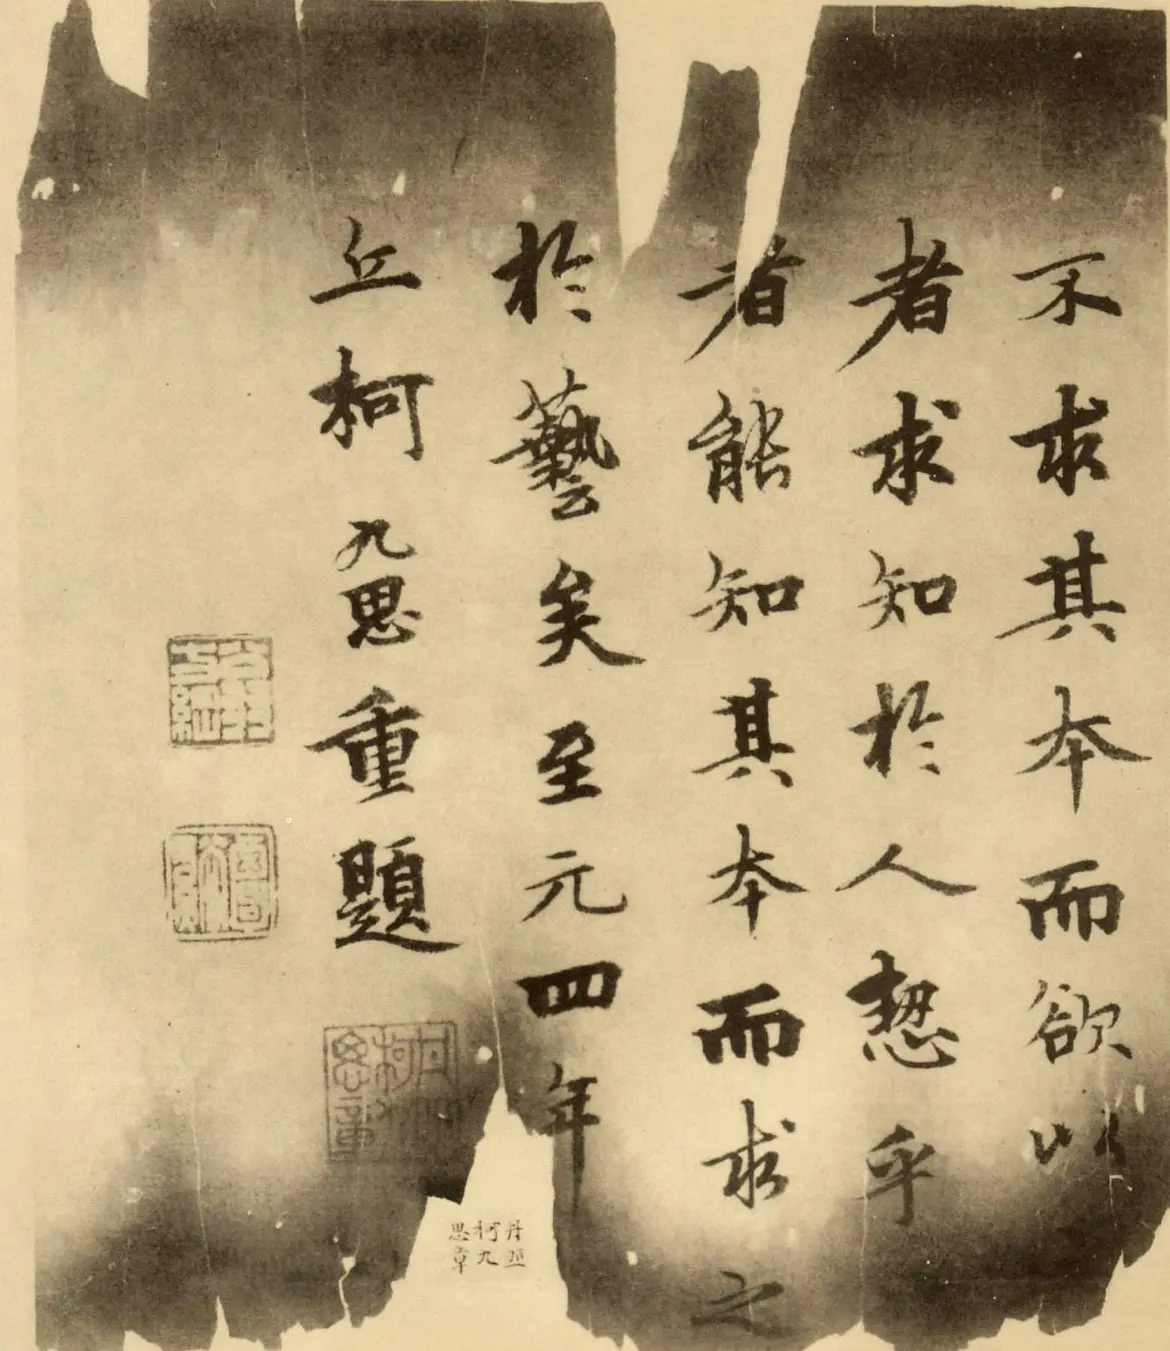 不求其本而欲以
者求知於人惑乎
者能知其本而求之
於藝矣至元四年
丘柯九思重題
丹丘
柯九
思章